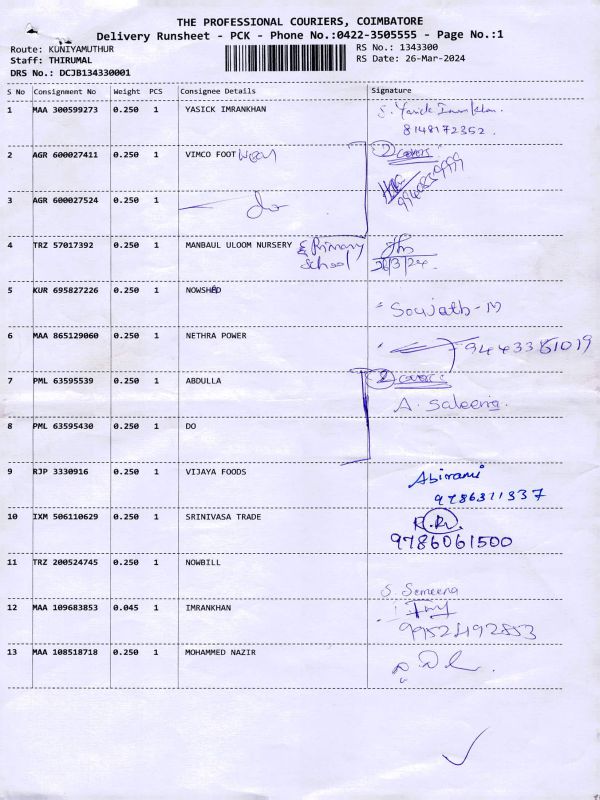 THE PROFESSIONAL COURIERS, COIMBATORE
Delivery Runsheet - PCK - Phone No.:0422-3505555 - Page No.:1
Route: KUNIYAMUTHUR
RS No.: 1343300
Staff: THIRUMAL
RS Date: 26-Mar-2024
DRS No.: DCJB134330001
S No Consignment No Weight PCS Consignee Details Signature
1 MAA 300599273 0.250 1 YASICK IMRANKHAN S. Yasick Imrankhan.
8148172352.
2 AGR 600027411 0.250 1 VIMCO FOOT Wear 2 covers
3 AGR 600027524 0.250 1 do
4 TRZ 57017392 0.250 1 MANBAUL ULOOM NURSERY & Primary School
26/3/24.
5 KUR 695827226 0.250 1 NOWSHAD Soujath-M
6 MAA 865129060 0.250 1 NETHRA POWER
7 PML 63595539 0.250 1 ABDULLA 2 covers
A. Saleena.
8 PML 63595430 0.250 1 DO
9 RJP 3330916 0.250 1 VIJAYA FOODS Abirami
9786311337
10 IXM 506110629 0.250 1 SRINIVASA TRADE
9786061500
11 TRZ 200524745 0.250 1 NOWBILL
S. Sameena
12 MAA 109683853 0.045 1 IMRANKHAN
9952492853
13 MAA 108518718 0.250 1 MOHAMMED NAZIR